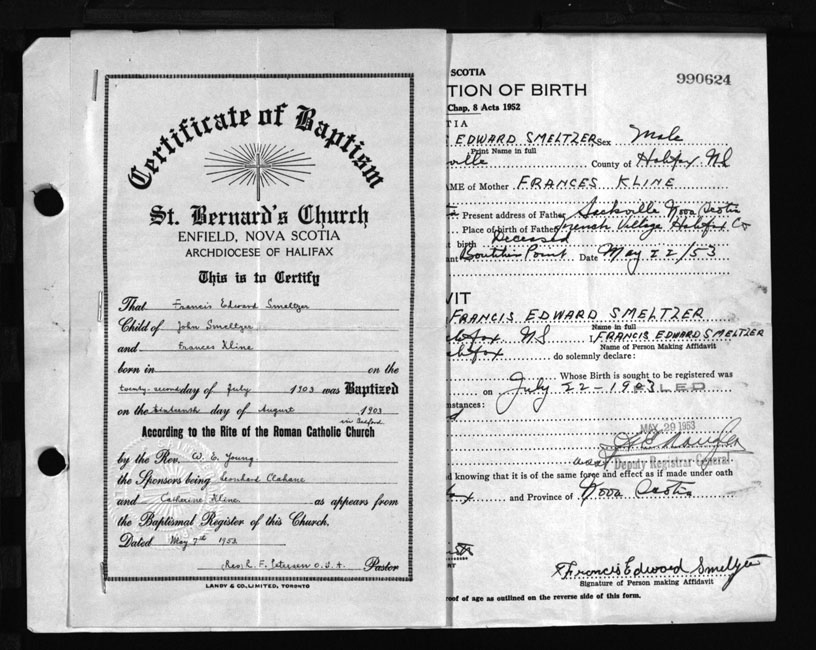 Certificate of Baptism
St. Bernard's Church
ENFIELD, NOVA SCOTIA
ARCHDIOCESE OF HALIFAX
This is to Certify
That Francis Edward Smeltzer
Child of John Smeltzer
and Frances Kline
born in on the
twenty-second day of July 1903 was Baptized
on the sixteenth day of August 1903
in Bedford
According to the Rite of the Roman Catholic Church
by the Rev. W. E. Young
the Sponsors being Leonard Clahane
and Catherine Kline as appears from
the Baptismal Register of this Church.
Dated May 7th 1953
Rev. L. F. Petersen O.S.A. Pastor
LANDY & CO. LIMITED, TORONTO
SCOTIA
990624
TION OF BIRTH
Chap. 8 Acts 1952
TIA
EDWARD SMELTZER Sex Male
Print Name in full
ville County of Halifax NS
ME of Mother FRANCES KLINE
Present address of Father Sackville Nova Scotia
Place of birth of Father French Village Halifax Co
birth Deceased
ant Boutilier Point Date May 22/53
VIT
FRANCIS EDWARD SMELTZER
Name in full
Halifax NS FRANCIS EDWARD SMELTZER
Name of Person Making Affidavit
Halifax do solemnly declare:
Whose Birth is sought to be registered was
on July 22-1903 FILED
mstances:
MAY 29 1953
was Deputy Registrar General
d knowing that it is of the same force and effect as if made under oath
fax and Province of Nova Scotia
RT
Francis Edward Smeltzer
Signature of Person making Affidavit
roof of age as outlined on the reverse side of this form.